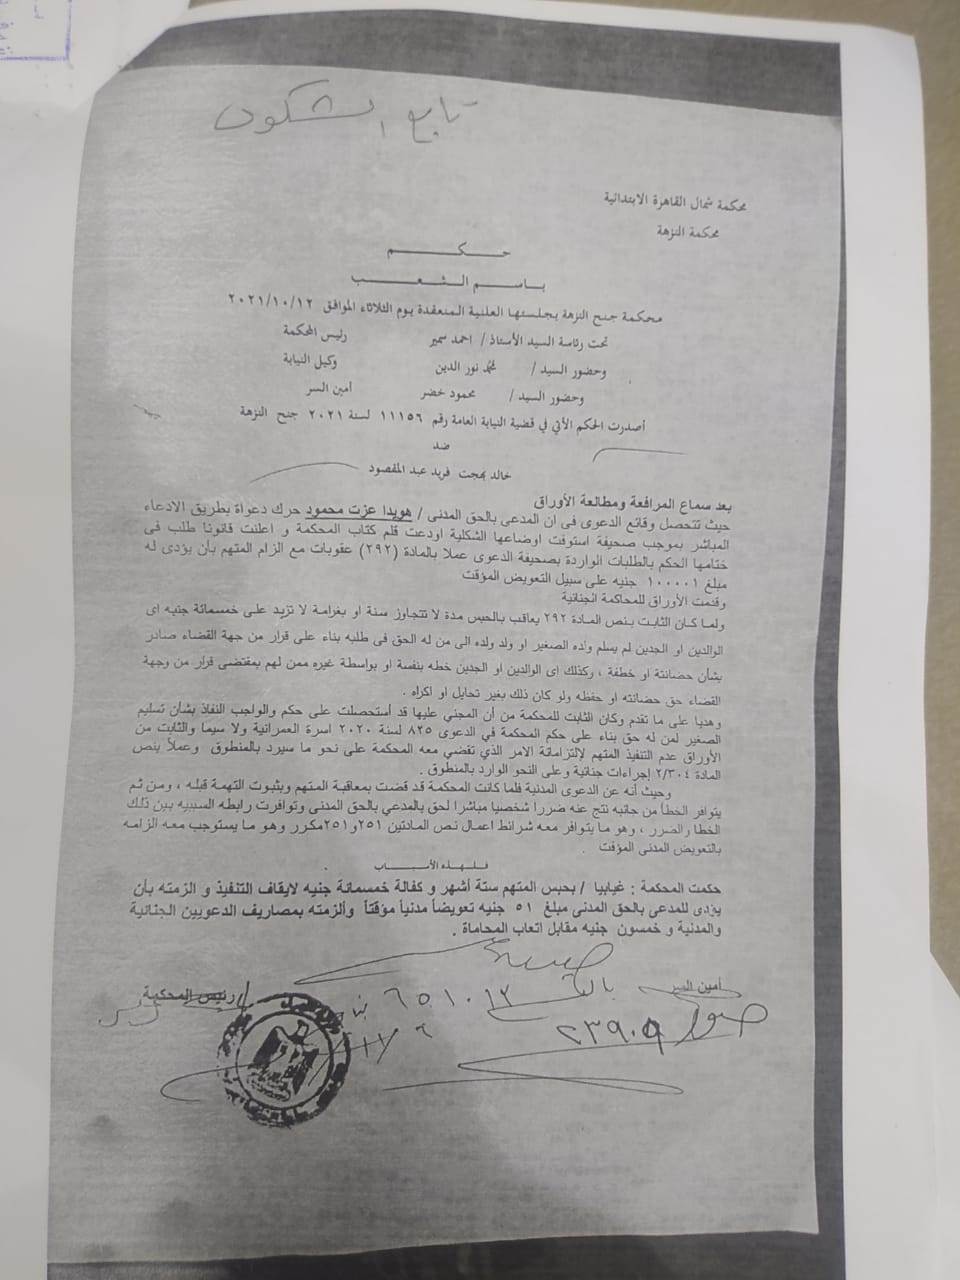 تابع الشكوى
محكمة شمال القاهرة الابتدائية
محكمة النزهة
حكم
باسم الشعب
محكمة جنح النزهة بجلستها العلنية المنعقدة يوم الثلاثاء الموافق ٢٠٢١/١٠/١٢
تحت رئاسة السيد الأستاذ / احمد سمير رئيس المحكمة
وحضور السيد / محمد نور الدين وكيل النيابة
وحضور السيد / محمود خضر أمين السر
أصدرت الحكم الأتي في قضية النيابة العامة رقم ١١١٥٦ لسنة ٢٠٢١ جنح النزهة
ضد
خالد بهجت فريد عبد المقصود
بعد سماع المرافعة ومطالعة الأوراق
حيث تتحصل وقائع الدعوى فى ان المدعى بالحق المدنى / هويدا عزت محمود حرك دعواة بطريق الادعاء
المباشر بموجب صحيفة استوفت اوضاعها الشكلية اودعت قلم كتاب المحكمة و اعلنت قانونا طلب فى
ختامها الحكم بالطلبات الواردة بصحيفة الدعوى عملا بالمادة (٢٩٢) عقوبات مع الزام المتهم بأن يؤدى له
مبلغ ١٠٠٠٠١ جنيه على سبيل التعويض المؤقت
وقدمت الأوراق للمحاكمة الجنائية
ولما كان الثابت بنص المادة ٢٩٢ يعاقب بالحبس مدة لا تتجاوز سنة او بغرامة لا تزيد على خمسمائة جنيه اى
الوالدين او الجدين لم يسلم ولده الصغير او ولد ولده الى من له الحق فى طلبه بناء على قرار من جهة القضاء صادر
بشأن حضانتة او خطفة ، وكذلك اى الوالدين او الجدين خطه بنفسة او بواسطة غيره ممن لهم بمقتضى قرار من وجهة
القضاء حق حضانته او حفظه ولو كان ذلك بغير تحايل او اكراه .
وهديا على ما تقدم وكان الثابت للمحكمة من أن المجني عليها قد أستحصلت على حكم والواجب النفاذ بشأن تسليم
الصغير لمن له حق بناء على حكم المحكمة في الدعوى ٨٢٥ لسنة ٢٠٢٠ اسرة العمرانية ولا سيما والثابت من
الأوراق عدم التنفيذ المتهم لإلتزاماتة الامر الذي تقضي معه المحكمة على نحو ما سيرد بالمنطوق وعملاً بنص
المادة ٢/٣٠٤ إجراءات جنائية وعلى النحو الوارد بالمنطوق .
وحيث أنه عن الدعوى المدنية فلما كانت المحكمة قد قضت بمعاقبة المتهم وبثبوت التهمة قبله ، ومن ثم
يتوافر الخطأ من جانبه نتج عنه ضررا شخصيا مباشرا لحق بالمدعي بالحق المدنى وتوافرت رابطه السببيه بين ذلك
الخطا والضرر ، وهو ما يتوافر معه شرائط اعمال نص المادتين ٢٥١ و٢٥١مكرر وهو ما يستوجب معه الزامه
بالتعويض المدنى المؤقت .
فلهذه الأسباب
حكمت المحكمة : غيابيا / بحبس المتهم ستة أشهر و كفالة خمسمائة جنيه لايقاف التنفيذ و الزمته بأن
يؤدى للمدعي بالحق المدنى مبلغ ٥١ جنيه تعويضاً مدنياً مؤقتاً وألزمته بمصاريف الدعويين الجنائية
والمدنية و خمسون جنيه مقابل اتعاب المحاماة .
أمين السر رئيس المحكمة